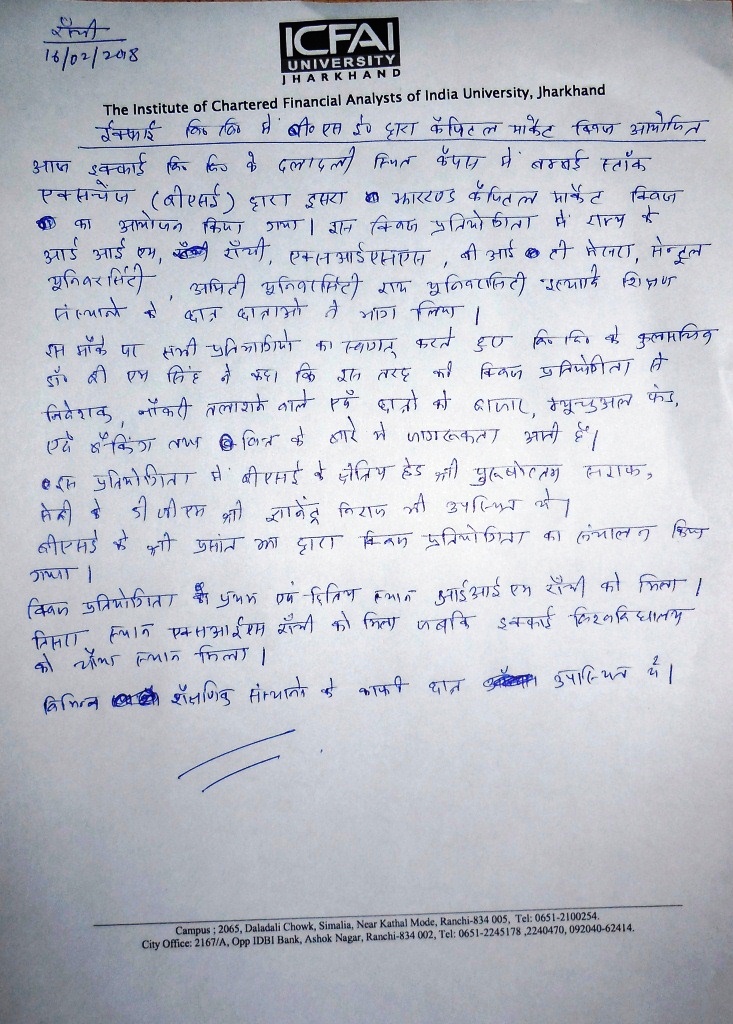 राँची
16/02/2018
ICFAI
UNIVERSITY
JHARKHAND
The Institute of Chartered Financial Analysts of India University, Jharkhand
इक्फाई वि० वि० में बी० एस ई० द्वारा कॅपिटल मार्केट क्विज आयोजित
आज इक्फाई वि० वि० के दलादली स्थित कैंपस में बम्बई स्टॉक
एक्सचेंज (बीएसई) द्वारा दुसरा झारखण्ड कॅपिटल मार्केट क्विज
का आयोजन किया गया। इस क्विज प्रतियोगिता में राज्य के
आई आई एम, राँची, एक्सआईएसएस, बी आई टी मेसरा, सेन्ट्रल
यूनिवर्सिटी, अमिटी यूनिवर्सिटी राय यूनिवर्सिटी इत्यादि शिक्षण
संस्थानो के छात्र छात्राओ ने भाग लिया।
इस मौके पर सभी प्रतिभागियो का स्वागत करते हुए वि० वि० के कुलसचिव
डॉ० बी एम सिंह ने कहा कि इस तरह की क्विज प्रतियोगिता से
निवेशक, नौकरी तलाशने वाले एवं छात्रो को बाजार, म्यूचुअल फंड,
एवं बैंकिंग तथा वित्त के बारे में जागरूकता आती है।
इस प्रतियोगिता में बीएसई के क्षेत्रिय हेड श्री पुरूषोत्तम सराफ,
सेबी के डी जी एम श्री भी उपस्थित थे।
बीएसई के श्री प्रसांत झा द्वारा क्विज प्रतियोगिता का संचालन किया
गया।
क्विज प्रतियोगिता में प्रथम एवं द्वितिय स्थान आईआई एम राँची को मिला।
तिसरा स्थान एक्सआईएस राँची को मिला जबकि इक्फाई विश्वविधालय
को चौथा स्थान मिला।
विभिन्न शैक्षणिक संस्थानो के काफी छात्र उपस्थित थे।
Campus ; 2065, Daladali Chowk, Simalia, Near Kathal Mode, Ranchi-834 005, Tel: 0651-2100254.
City Office: 2167/A, Opp IDBI Bank, Ashok Nagar, Ranchi-834 002, Tel: 0651-2245178 ,2240470, 092040-62414.